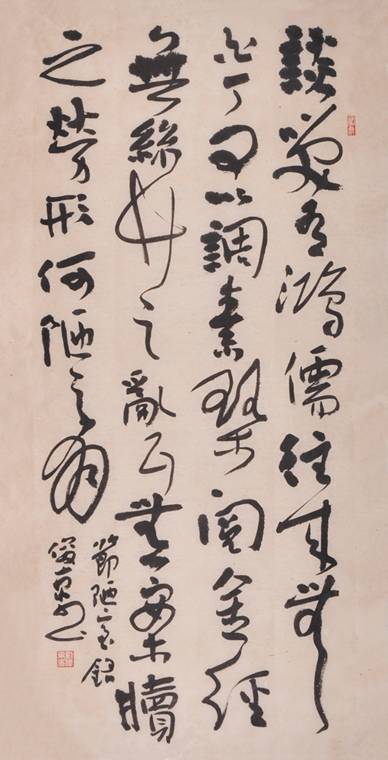 談笑有鴻儒往來無
白丁可以調素琴閱金經
無絲竹之亂耳無案牘
之勞形何陋之有
節陋室銘